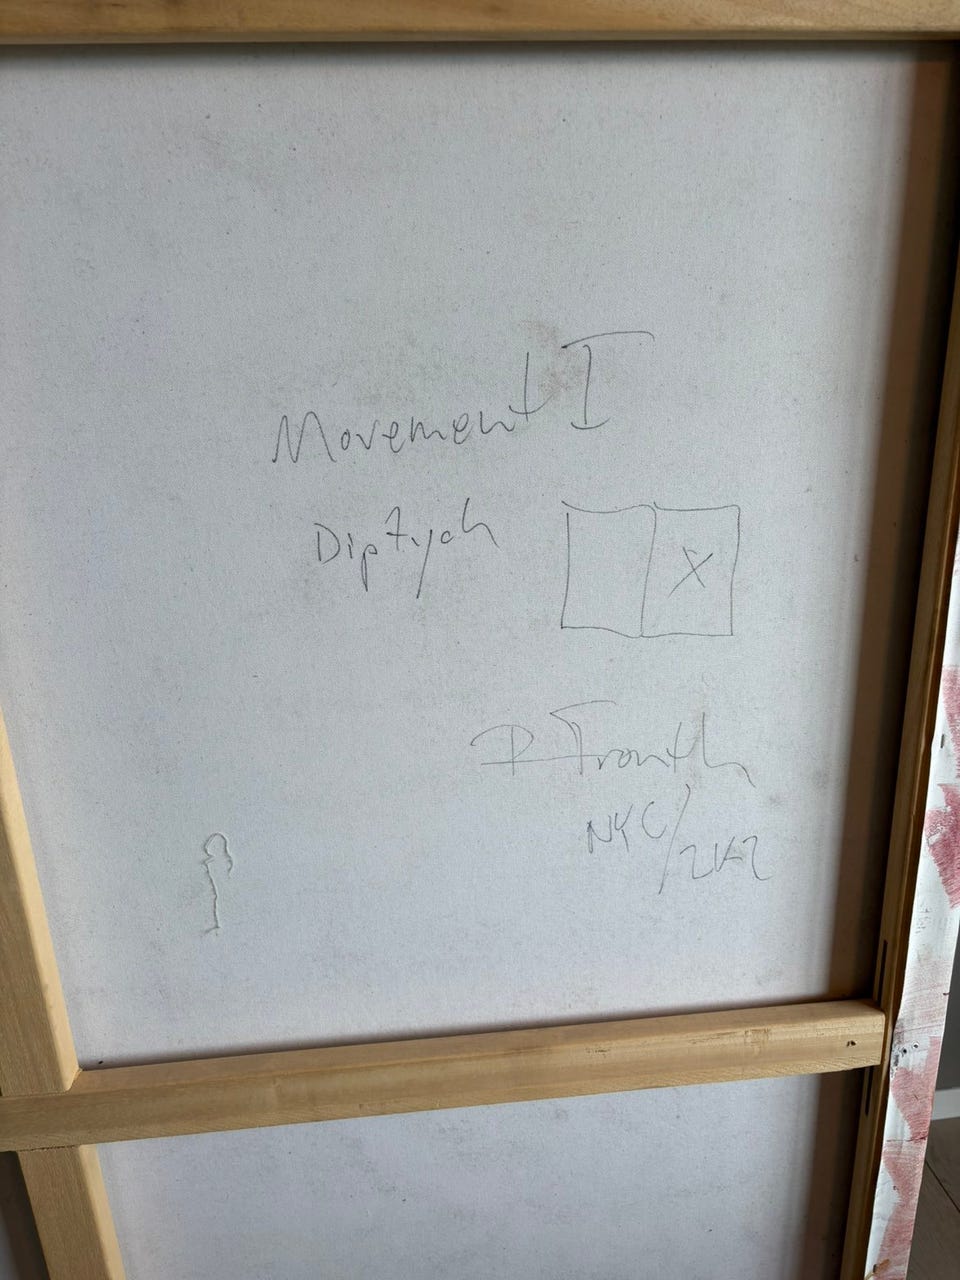 Movement I
Diptych
X
NYC/2K2